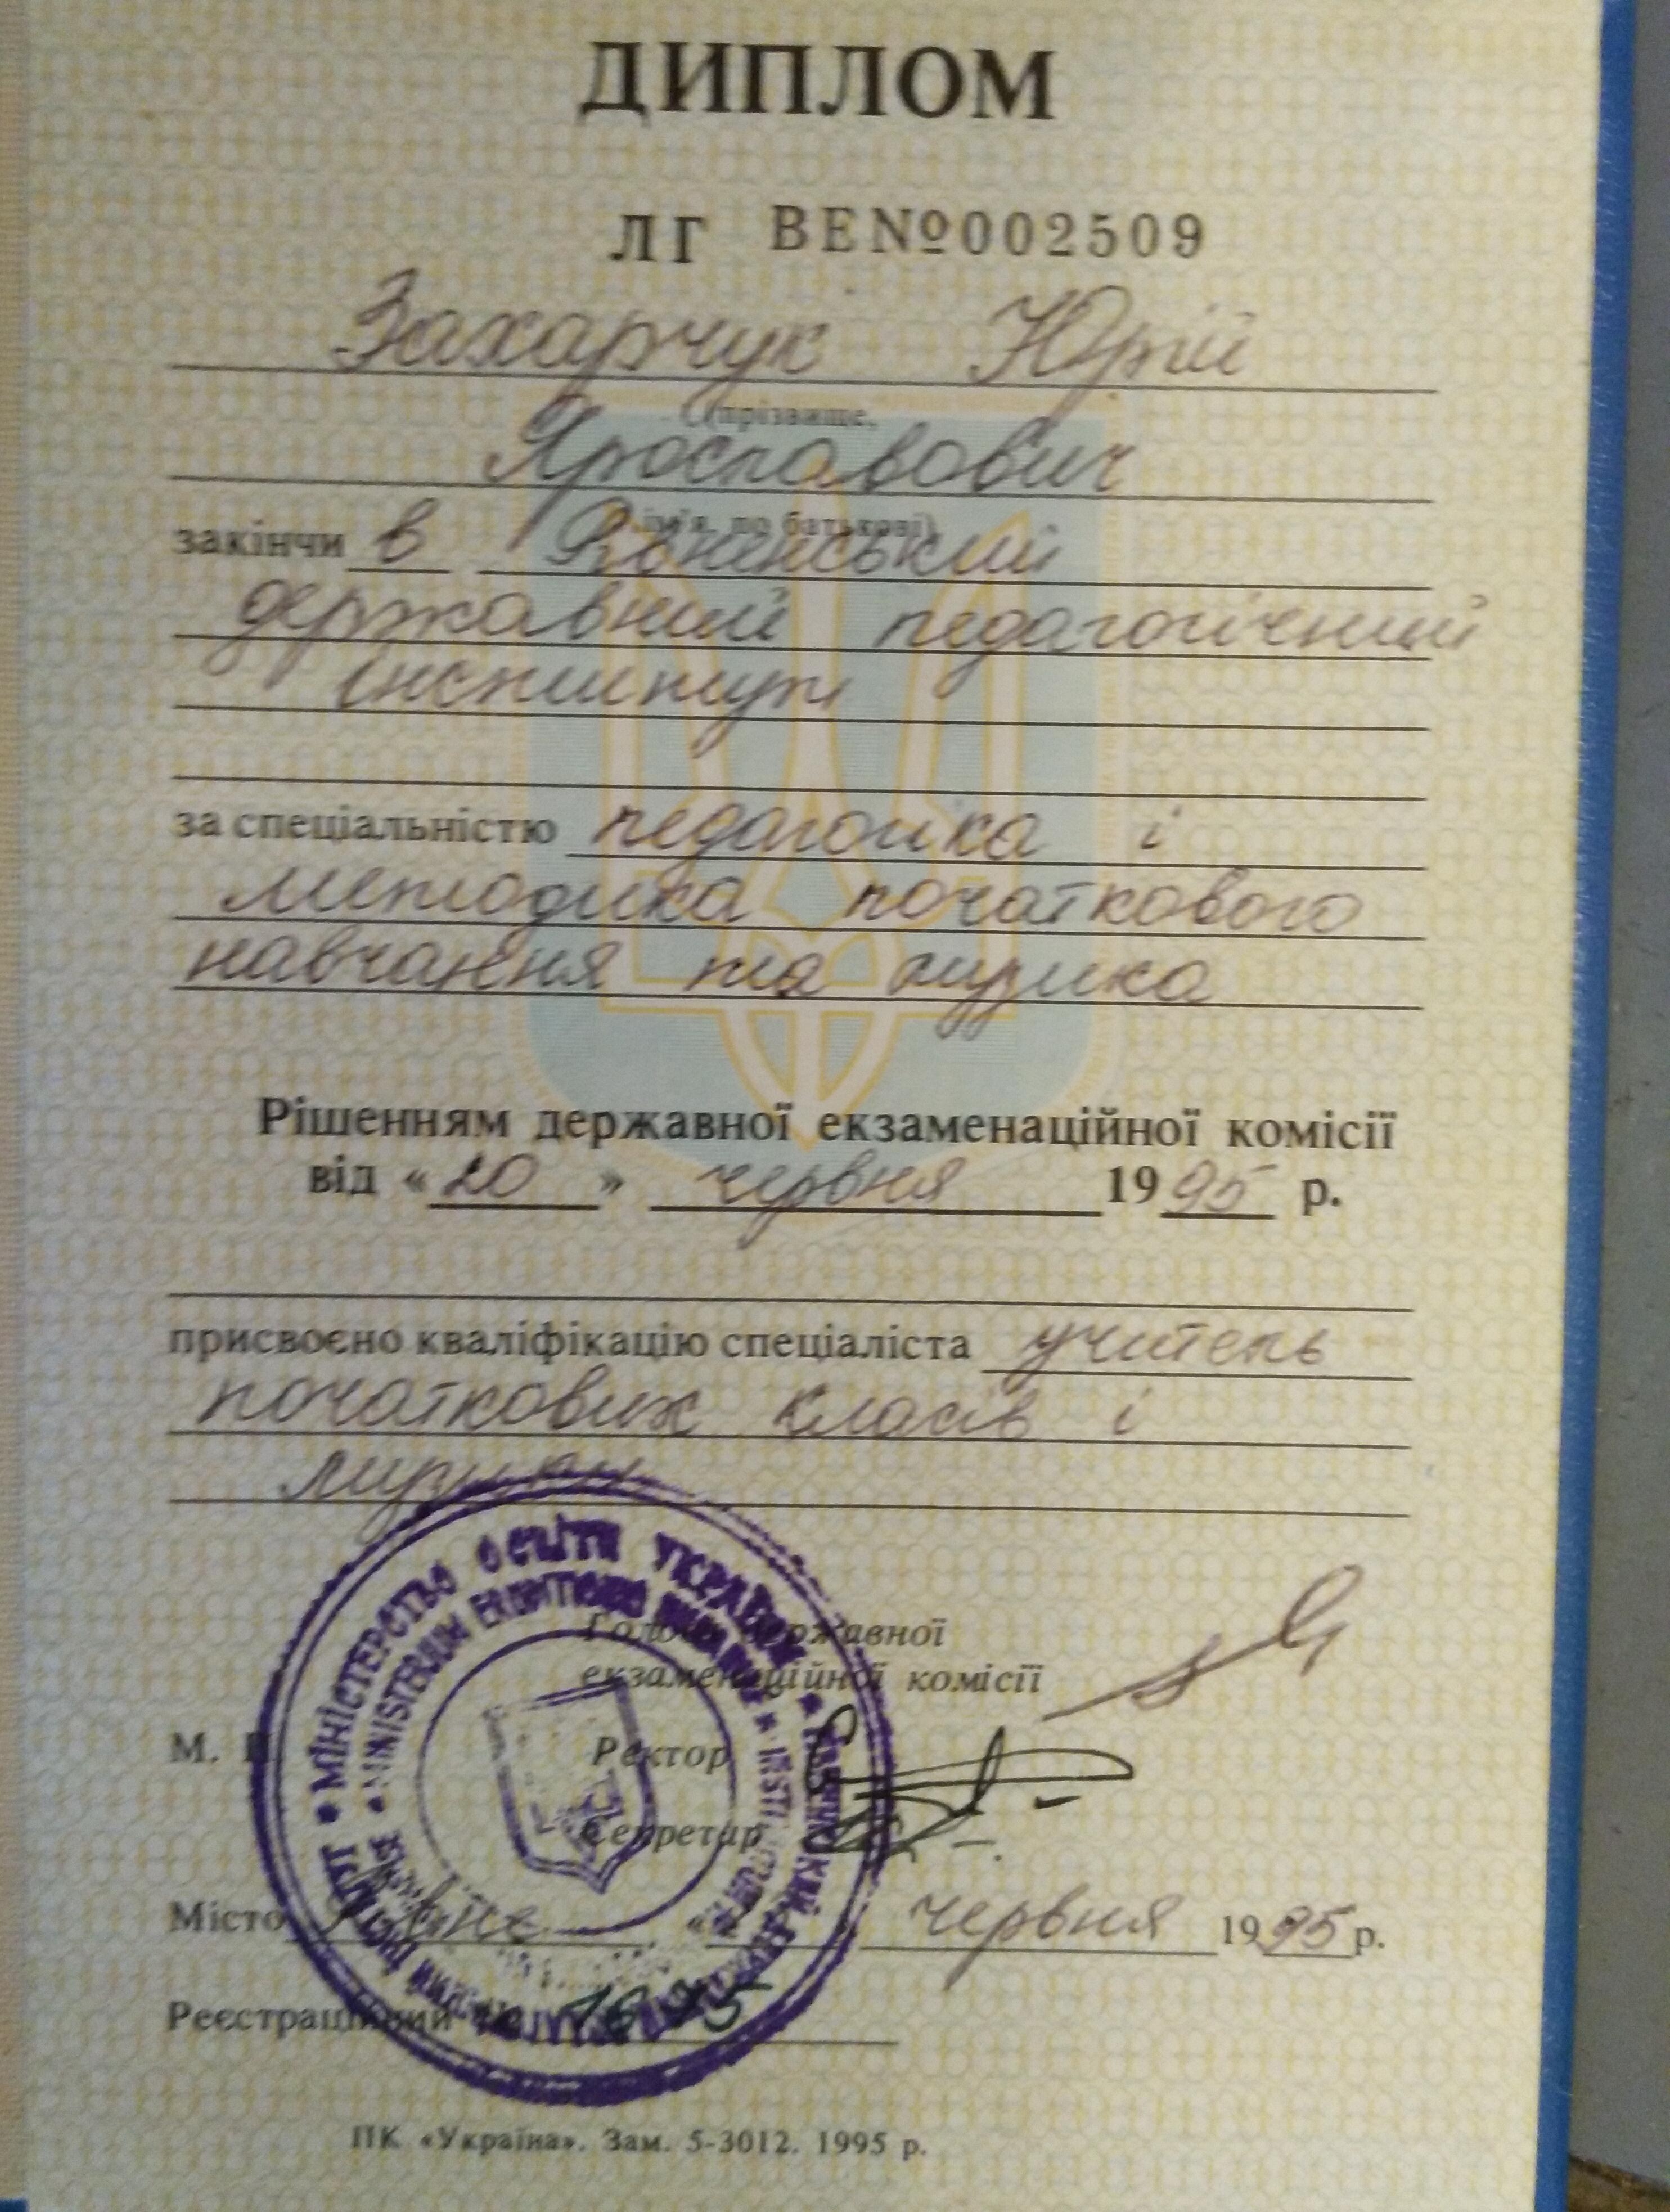 ДИПЛОМ
ЛГ ВЕ№002509
Захарчук Юрій
(прізвище,
Ярославович
ім'я, по батькові)
закінчив Рівненський
державний педагогічний
інститут
за спеціальністю педагогіка і
методика початкового
навчання та музика
Рішенням державної екзаменаційної комісії
від «20» червня 1995 р.
присвоєно кваліфікацію спеціаліста учитель
початкових класів і
музики
МІНІСТЕРСТВО ОСВІТИ УКРАЇНИ
Голова державної
екзаменаційної комісії
М. П.
Ректор
Секретар
Місто Рівне червня 1995 р.
Реєстраційний №
ПК «Україна». Зам. 5-3012. 1995 р.